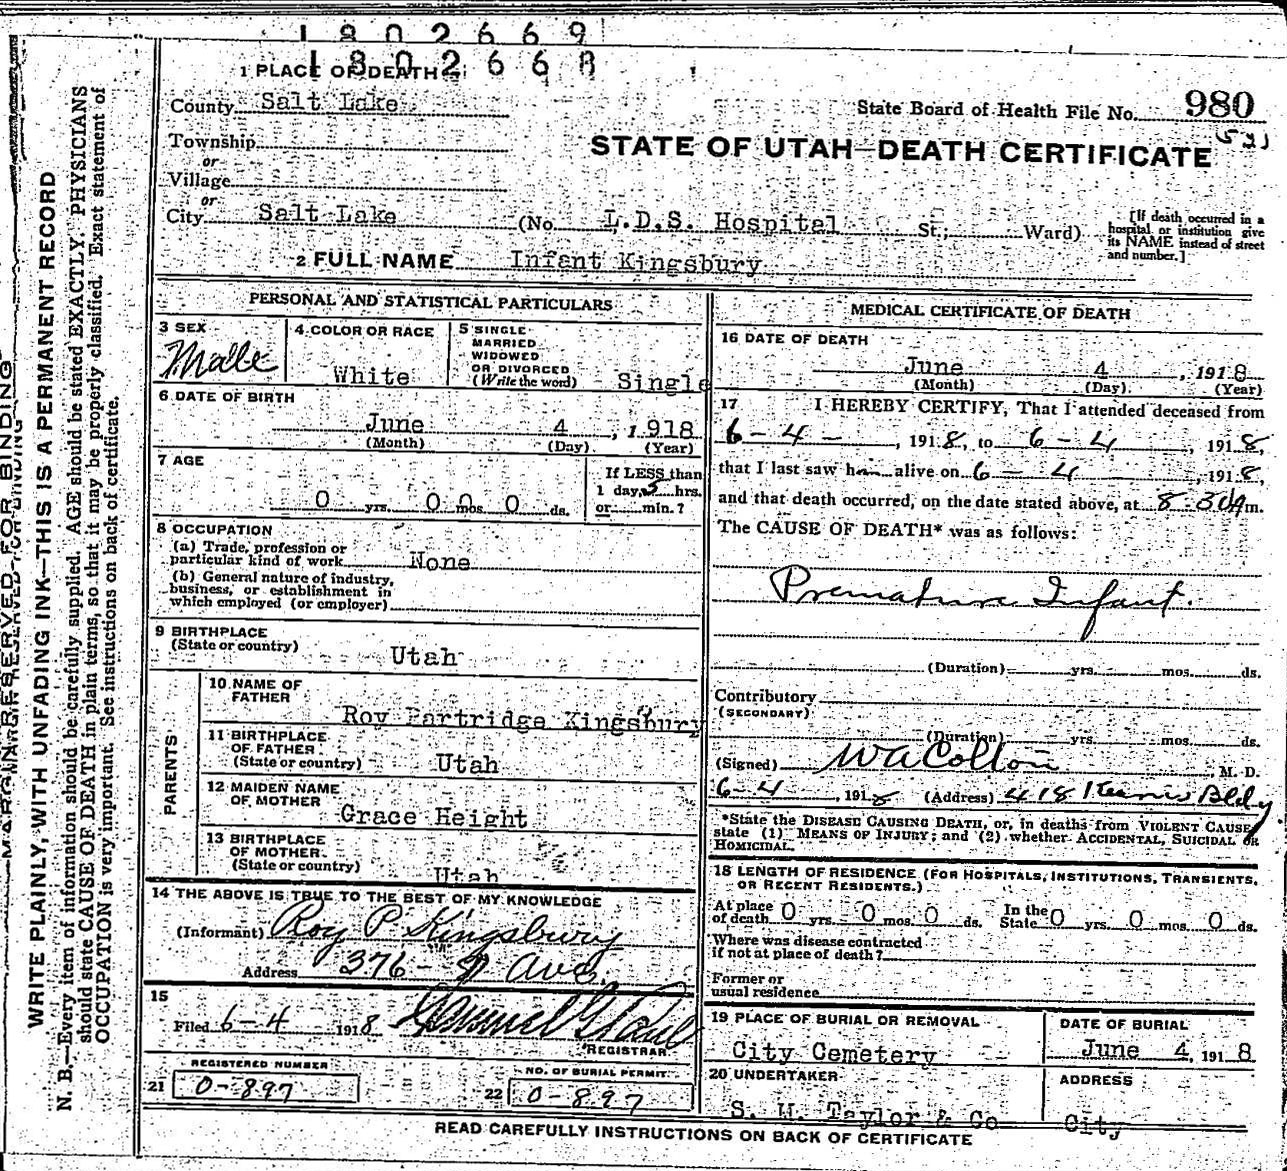 1802669
1802668
1 PLACE OF DEATH
County Salt Lake
State Board of Health File No. 980
Township
or
Village
or
STATE OF UTAH—DEATH CERTIFICATE
City Salt Lake (No. L.D.S. Hospital St.; Ward)
[If death occurred in a
hospital or institution give
its NAME instead of street
and number.]
2 FULL NAME Infant Kingsbury
PERSONAL AND STATISTICAL PARTICULARS
3 SEX
Male
4 COLOR OR RACE
White
5 SINGLE
MARRIED
WIDOWED
OR DIVORCED
(Write the word) Single
6 DATE OF BIRTH
June 4, 1918
(Month) (Day) (Year)
7 AGE
0 yrs. 0 mos. 0 ds.
If LESS than
1 day, 5 hrs.
or min.?
8 OCCUPATION
(a) Trade, profession or
particular kind of work None
(b) General nature of industry,
business, or establishment in
which employed (or employer)
9 BIRTHPLACE
(State or country) Utah
PARENTS
10 NAME OF
FATHER
Roy Partridge Kingsbury
11 BIRTHPLACE
OF FATHER
(State or country) Utah
12 MAIDEN NAME
OF MOTHER
Grace Height
13 BIRTHPLACE
OF MOTHER
(State or country) Utah
14 THE ABOVE IS TRUE TO THE BEST OF MY KNOWLEDGE
(Informant) Roy P Kingsbury
Address 376 - Ave.
15
Filed 6-4 1918
REGISTRAR
REGISTERED NUMBER
21 0-897
NO. OF BURIAL PERMIT
22 0-897
MEDICAL CERTIFICATE OF DEATH
16 DATE OF DEATH
June 4, 1918
(Month) (Day) (Year)
17 I HEREBY CERTIFY, That I attended deceased from
6-4-, 1918, to 6-4, 1918,
that I last saw h alive on 6-4, 1918,
and that death occurred, on the date stated above, at 8-30A m.
The CAUSE OF DEATH* was as follows:
Premature Infant.
(Duration) yrs. mos. ds.
Contributory
(SECONDARY)
(Duration) yrs. mos. ds.
(Signed) W A Colton, M. D.
6-4, 1918 (Address) 418 Kearns Bldg
*State the DISEASE CAUSING DEATH, or, in deaths from VIOLENT CAUSE
state (1) MEANS OF INJURY; and (2) whether ACCIDENTAL, SUICIDAL OR
HOMICIDAL.
18 LENGTH OF RESIDENCE (FOR HOSPITALS, INSTITUTIONS, TRANSIENTS,
OR RECENT RESIDENTS.)
At place
of death 0 yrs. 0 mos. 0 ds.
In the
State 0 yrs. 0 mos. 0 ds.
Where was disease contracted
if not at place of death?
Former or
usual residence
19 PLACE OF BURIAL OR REMOVAL
City Cemetery
DATE OF BURIAL
June 4, 1918
20 UNDERTAKER
S. M. Taylor & Co
ADDRESS
City
READ CAREFULLY INSTRUCTIONS ON BACK OF CERTIFICATE
MARGIN RESERVED FOR BINDING
WRITE PLAINLY, WITH UNFADING INK—THIS IS A PERMANENT RECORD
N. B.—Every item of information should be carefully supplied. AGE should be stated EXACTLY. PHYSICIANS
should state CAUSE OF DEATH in plain terms, so that it may be properly classified. Exact statement of
OCCUPATION is very important. See instructions on back of certificate.